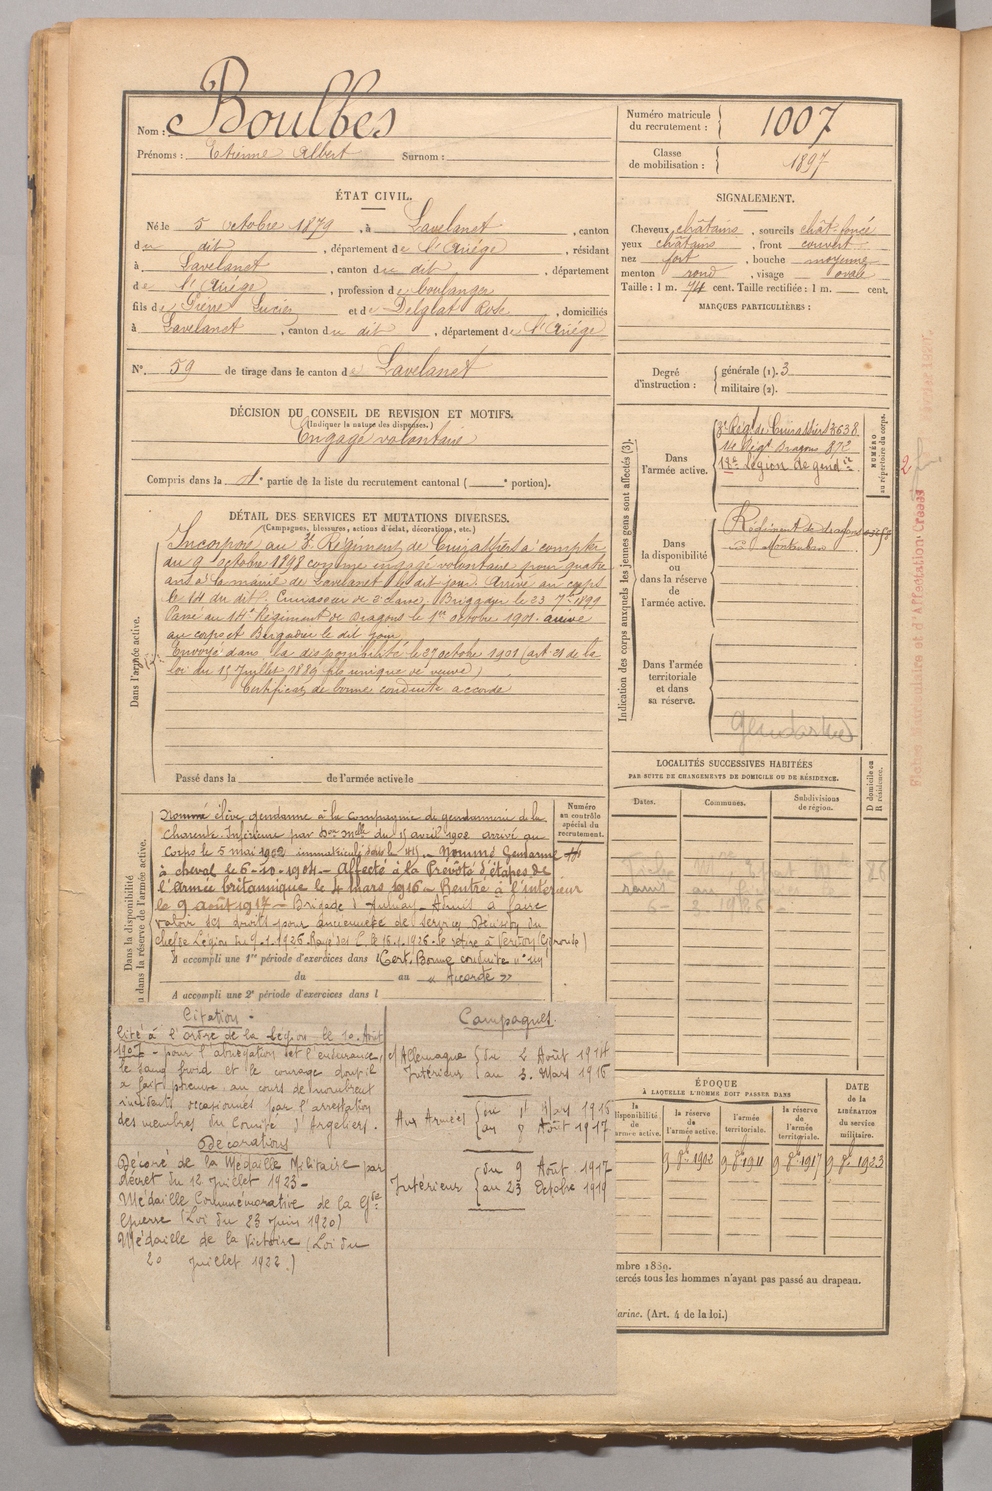 Nom : Boulbes
Prénoms : Etienne Albert Surnom :
Numéro matricule du recrutement : 1007
Classe de mobilisation : 1897
ÉTAT CIVIL.
Né le 5 octobre 1879, à Lavelanet, canton
du dit, département de l'Ariége, résidant
à Lavelanet, canton du dit, département
de l'Ariége, profession de boulanger
fils de Pierre Lucien et de Delglat Rose, domiciliés
à Lavelanet, canton du dit, département de l'Ariége
N° 59 de tirage dans le canton de Lavelanet
SIGNALEMENT.
Cheveux châtains, sourcils chât-foncé
yeux châtains, front couvert
nez fort, bouche moyenne
menton rond, visage ovale
Taille : 1 m. 74 cent. Taille rectifiée : 1 m. cent.
MARQUES PARTICULIÈRES :
Degré d'instruction : générale (1). 3
militaire (2).
DÉCISION DU CONSEIL DE REVISION ET MOTIFS.
(Indiquer la nature des dispenses.)
Engagé volontaire
Compris dans la 1e partie de la liste du recrutement cantonal ( e portion).
DÉTAIL DES SERVICES ET MUTATIONS DIVERSES.
(Campagnes, blessures, actions d'éclat, décorations, etc.)
Dans l'armée active.
Incorporé au 3e Régiment de Cuirassiers à compter
du 9 octobre 1898 comme engagé volontaire pour quatre
ans à la mairie de Lavelanet le dit jour. Arrivé au corps
le 14 du dit. Cuirassier de 2e classe. Brigadier le 23 7bre 1899
Passé au 14e Régiment de Dragons le 1er octobre 1901. arrivé
au corps et Brigadier le dit jour.
Envoyé dans la disponibilité le 27 octobre 1901 (art 21 de la
loi du 15 Juillet 1889 fils unique de veuve)
Certificat de bonne conduite accordé
Passé dans la de l'armée active le
Indication des corps auxquels les jeunes gens sont affectés (3).
NUMÉRO au répertoire du corps.
Dans l'armée active.
3e Rég. de Cuirassiers 3638
14e Régt Dragons 872
18e Légion de gendie
Dans la disponibilité ou dans la réserve de l'armée active.
Régiment de dragons
à Montauban
Dans l'armée territoriale et dans sa réserve.
Gendarme
Dans la disponibilité ou dans la réserve de l'armée active.
Numéro au contrôle spécial du recrutement.
Nommé élève gendarme à la Compagnie de gendarmerie de la
Charente Inférieure par Don Mlle du 15 avril 1902 arrivé au
corps le 5 mai 1902 immatriculé sous le 1451. Nommé Gendarme
à cheval le 6-10-1904 - Affecté à la Prévôté d'étapes de
l'armée britannique le 4 mars 1916 - Rentré à l'intérieur
le 9 août 1917 - Brigade d'Aulnay - Admis à faire
valoir ses droits pour ancienneté de services Décision du
chef de Légion du 9.1.1926. Rayé des C. le 16.1.1926. Se retire à Vertou (Gironde)
A accompli une 1re période d'exercices dans l Cert. Bonne conduite
du au « Accordé »
A accompli une 2e période d'exercices dans l
LOCALITÉS SUCCESSIVES HABITÉES
PAR SUITE DE CHANGEMENTS DE DOMICILE OU DE RÉSIDENCE.
Dates. Communes. Subdivisions de région. D domicile ou R résidence.
ÉPOQUE
À LAQUELLE L'HOMME DOIT PASSER DANS
la disponibilité de l'armée active. la réserve de l'armée active. l'armée territoriale. la réserve de l'armée territoriale.
DATE de la LIBÉRATION du service militaire.
9 8bre 1902 9 8bre 1911 9 8bre 1917 9 8bre 1923
Citation -
Cité à l'ordre de la Légion le 10 Août
1907 - pour l'abnégation et l'endurance,
le sang froid et le courage dont il
a fait preuve au cours de nombreux
incidents occasionnés par l'arrestation
des membres du Comité d'Argeliers.
Décorations
Décoré de la Médaille Militaire par
décret du 12 juillet 1923 -
Médaille Commémorative de la Gde
Guerre (Loi du 23 juin 1920)
Médaille de la Victoire (Loi du
20 juillet 1922.)
Campagnes.
c/ Allemagne
Intérieur { du 2 Août 1914
au 3. Mars 1916
Aux Armées { du 4 Mars 1916
au 8 Août 1917
Intérieur { du 9 Août 1917
au 23 Octobre 1919
embre 1889.
exercés tous les hommes n'ayant pas passé au drapeau.
Marine. (Art. 4 de la loi.)